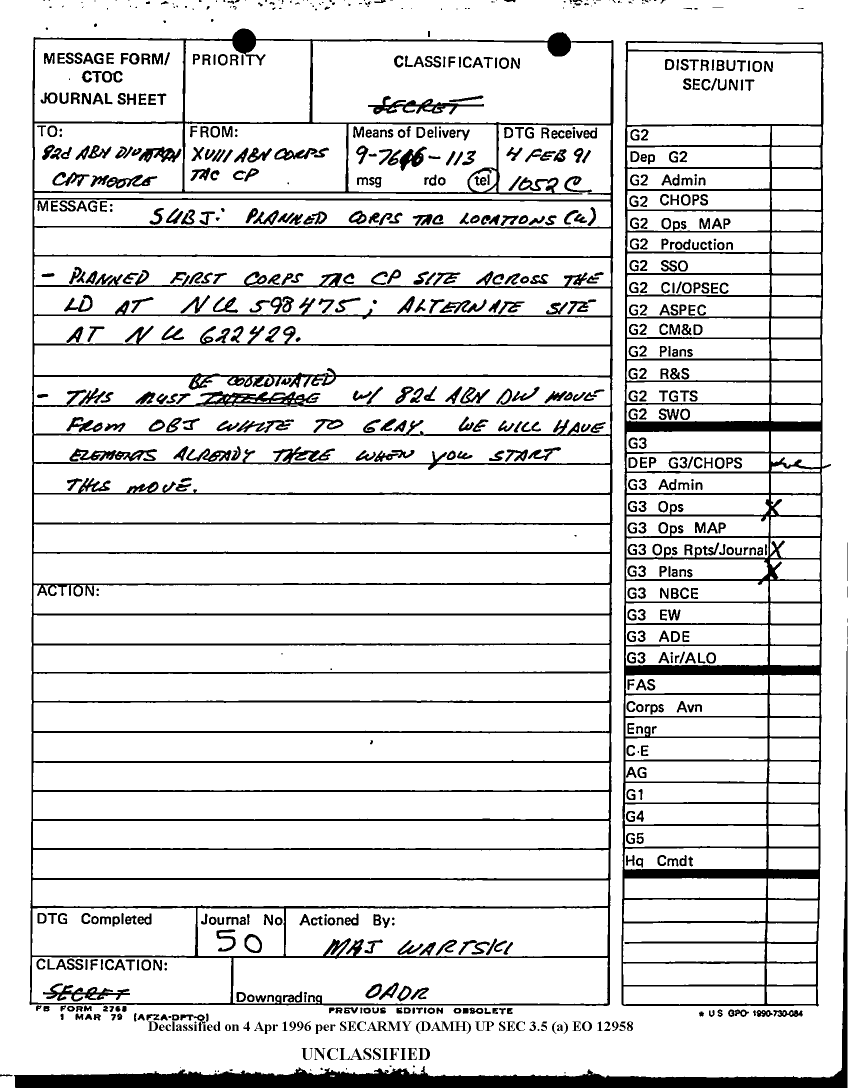 MESSAGE FORM/
CTOC
JOURNAL SHEET
PRIORITY
CLASSIFICATION
SECRET
TO:
82d ABN DIV MAIN
CPT MOORE
FROM:
XVIII ABN CORPS
TAC CP
Means of Delivery
9-7616-113
msg rdo tel
DTG Received
4 FEB 91
1052 C
MESSAGE:
SUBJ: PLANNED CORPS TAC LOCATIONS (U)
- PLANNED FIRST CORPS TAC CP SITE ACROSS THE
LD AT NU 598475; ALTERNATE SITE
AT NU 622429.
BE COORDINATED
- THIS MUST INTERFACE W/ 82d ABN DIV MOVE
FROM OBJ WHITE TO GRAY. WE WILL HAVE
ELEMENTS ALREADY THERE WHEN YOU START
THIS MOVE.
ACTION:
DTG Completed
Journal No.
50
Actioned By:
MAJ WARTSKI
CLASSIFICATION:
SECRET
Downgrading OADR
FB FORM 2768
1 MAR 79 (AFZA-DPT-O)
PREVIOUS EDITION OBSOLETE
DISTRIBUTION
SEC/UNIT
G2
Dep G2
G2 Admin
G2 CHOPS
G2 Ops MAP
G2 Production
G2 SSO
G2 CI/OPSEC
G2 ASPEC
G2 CM&D
G2 Plans
G2 R&S
G2 TGTS
G2 SWO
G3
DEP G3/CHOPS
G3 Admin
G3 Ops X
G3 Ops MAP
G3 Ops Rpts/Journal X
G3 Plans X
G3 NBCE
G3 EW
G3 ADE
G3 Air/ALO
FAS
Corps Avn
Engr
C-E
AG
G1
G4
G5
Hq Cmdt
* U S GPO: 1990-730-084
Declassified on 4 Apr 1996 per SECARMY (DAMH) UP SEC 3.5 (a) EO 12958
UNCLASSIFIED